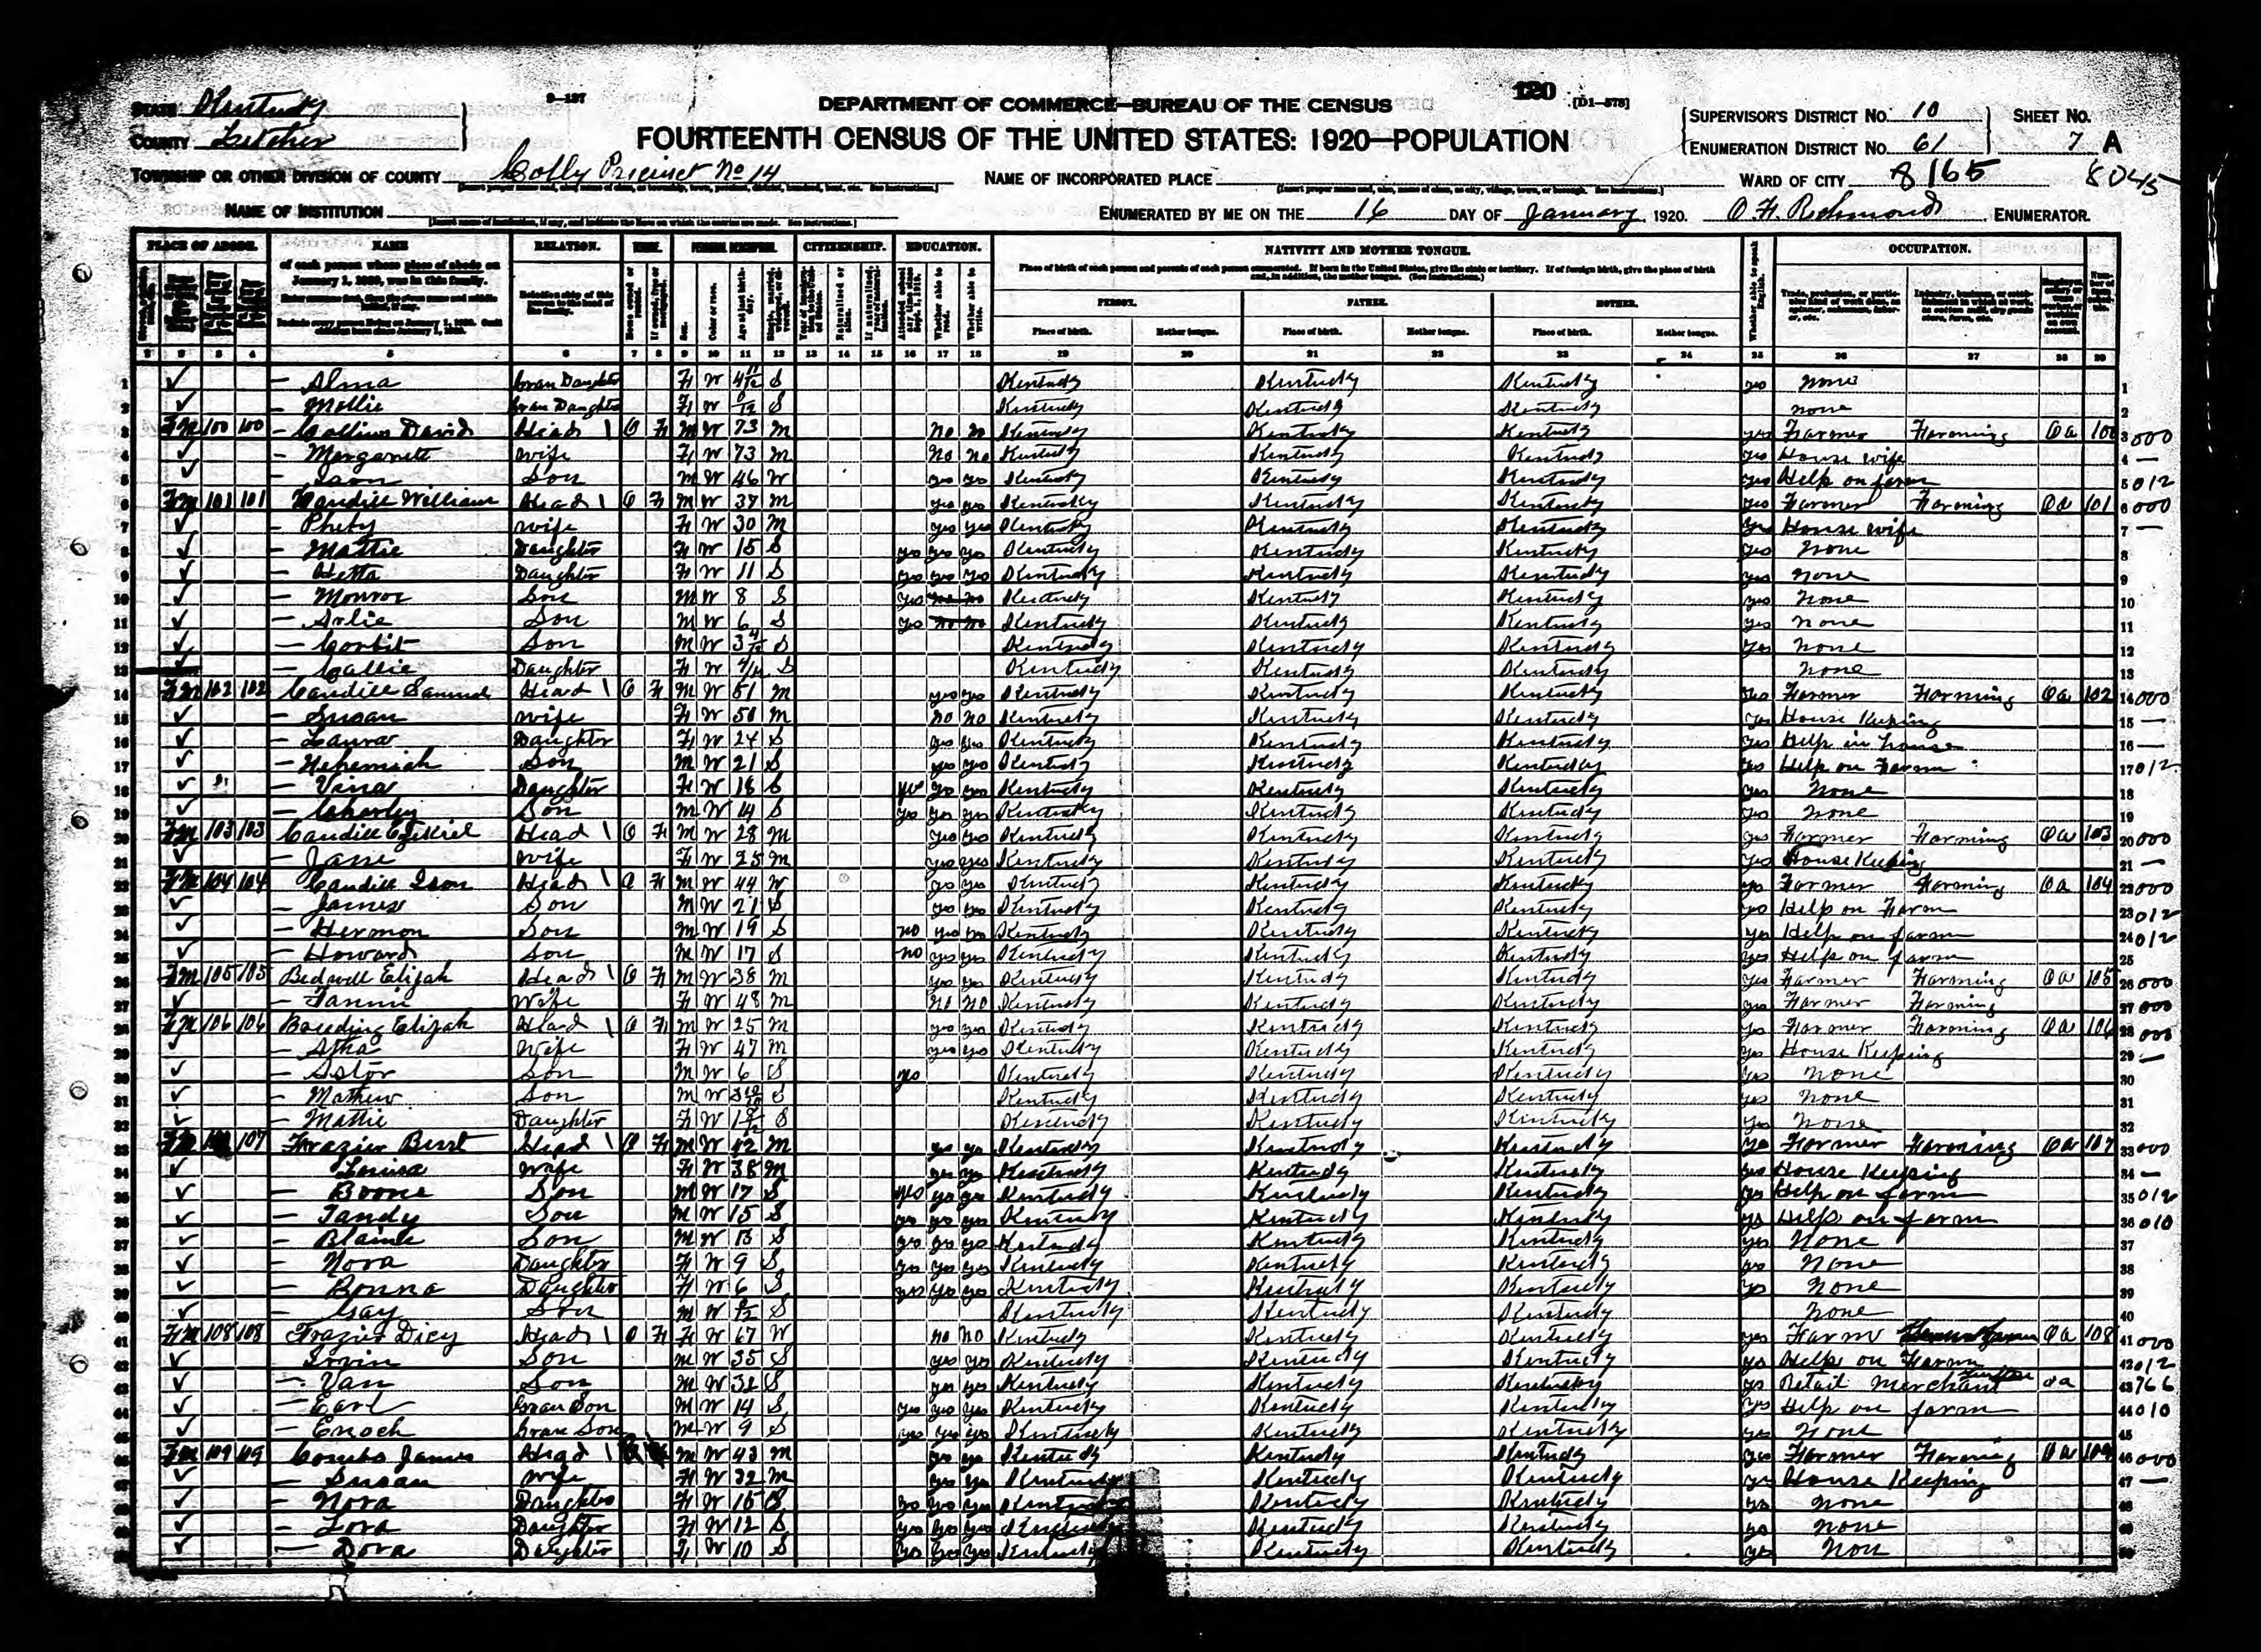 STATE Kentucky
COUNTY Letcher
9-137
DEPARTMENT OF COMMERCE—BUREAU OF THE CENSUS
120 [D1-578]
FOURTEENTH CENSUS OF THE UNITED STATES: 1920—POPULATION
SUPERVISOR'S DISTRICT No. 10
ENUMERATION DISTRICT No. 61
SHEET No. 7 A
TOWNSHIP OR OTHER DIVISION OF COUNTY Colly Precinct No 14
NAME OF INCORPORATED PLACE
WARD OF CITY 8165 8045
NAME OF INSTITUTION
ENUMERATED BY ME ON THE 16 DAY OF January, 1920. O H. Richmond ENUMERATOR.
PLACE OF ABODE. NAME RELATION. PERSONAL DESCRIPTION. CITIZENSHIP. EDUCATION. NATIVITY AND MOTHER TONGUE. OCCUPATION.
of each person whose place of abode on January 1, 1920, was in this family.
Place of birth of each person and parents of each person enumerated. If born in the United States, give the state or territory. If of foreign birth, give the place of birth and, in addition, the mother tongue. (See instructions.)
PERSON. FATHER. MOTHER.
Place of birth. Mother tongue. Place of birth. Mother tongue. Place of birth. Mother tongue.
1 2 3 4 5 6 7 8 9 10 11 12 13 14 15 16 17 18 19 20 21 22 23 24 25 26 27 28 29
1 — Alma Gran Daughter F W 4 11/12 S Kentucky Kentucky Kentucky yes none 1
2 — Mollie Gran Daughter F W S Kentucky Kentucky Kentucky none 2
3 FM 100 100 — Collins David Head 1 O F M W 73 M no no Kentucky Kentucky Kentucky yes Farmer Farming Oa 100 3 000
4 — Margarett wife F W 73 M No No Kentucky Kentucky Kentucky yes House wife 4 —
5 — Ison Son M W 46 W yes yes Kentucky Kentucky Kentucky yes Help on farm 5 012
6 FM 101 101 Caudill William Head 1 O F M W 37 M yes yes Kentucky Kentucky Kentucky yes Farmer Farming Oa 101 6 000
7 — Pheby wife F W 30 M yes yes Kentucky Kentucky Kentucky yes House wife 7 —
8 — Mattie Daughter F W 15 S yes yes yes Kentucky Kentucky Kentucky yes none 8
9 — Hetta Daughter F W 11 S yes yes yes Kentucky Kentucky Kentucky yes none 9
10 — Monroe Son M W 8 S yes no no Kentucky Kentucky Kentucky yes none 10
11 — Arlie Son M W 6 S yes no no Kentucky Kentucky Kentucky yes none 11
12 — Corbit Son M W 3 4/12 S Kentucky Kentucky Kentucky yes none 12
13 — Callie Daughter F W S Kentucky Kentucky Kentucky none 13
14 FM 102 102 Caudill Samuel Head 1 O F M W 51 M yes yes Kentucky Kentucky Kentucky yes Farmer Farming Oa 102 14 000
15 — Susan wife F W 50 M no no Kentucky Kentucky Kentucky yes House Keeping 15 —
16 — Laura Daughter F W 24 S yes yes Kentucky Kentucky Kentucky yes Help in house 16 —
17 — Nehemiah Son M W 21 S yes yes Kentucky Kentucky Kentucky yes Help on Farm 17 012
18 — Vina Daughter F W 18 S yes yes yes Kentucky Kentucky Kentucky yes None 18
19 — Charley Son M W 14 S yes yes yes Kentucky Kentucky Kentucky yes none 19
20 FM 103 103 Caudill Ezikiel Head 1 O F M W 28 M yes yes Kentucky Kentucky Kentucky yes Farmer Farming Oa 103 20 000
21 — Jane wife F W 25 M yes yes Kentucky Kentucky Kentucky yes House Keeping 21 —
22 FM 104 104 Caudill Ison Head 1 O F M W 44 W yes yes Kentucky Kentucky Kentucky yes Farmer Farming Oa 104 22 000
23 — James Son M W 21 S yes yes Kentucky Kentucky Kentucky yes Help on Farm 23 012
24 — Hermon Son M W 19 S no yes no Kentucky Kentucky Kentucky yes Help on farm 24 012
25 — Howard Son M W 17 S no yes yes Kentucky Kentucky Kentucky yes Help on farm 25
26 FM 105 105 Bedwell Elijah Head 1 O F M W 38 M yes yes Kentucky Kentucky Kentucky yes Farmer Farming Oa 105 26 000
27 — Fannie Wife F W 48 M No NO Kentucky Kentucky Kentucky yes Farmer Farming 27 000
28 FM 106 106 Elijah Head 1 O F M W 25 M yes yes Kentucky Kentucky Kentucky yes Farmer Farming Oa 106 28 000
29 — Wife F W 47 M yes yes Kentucky Kentucky Kentucky yes House Keeping 29 —
30 — Astor Son M W 6 S yes Kentucky Kentucky Kentucky yes none 30
31 — Mathew Son M W S Kentucky Kentucky Kentucky yes none 31
32 — Mattie Daughter F W S Kentucky Kentucky Kentucky yes none 32
33 FM 107 Frazier Burt Head 1 O F M W 42 M yes yes Kentucky Kentucky Kentucky yes Farmer Farming Oa 107 33 000
34 — Louisa wife F W 38 M yes yes Kentucky Kentucky Kentucky yes House Keeping 34 —
35 — Boone Son M W 17 S yes yes yes Kentucky Kentucky Kentucky yes Help on farm 35 012
36 — Tandy Son M W 15 S yes yes yes Kentucky Kentucky Kentucky yes Help on farm 36 010
37 — Blaine Son M W 13 S yes yes yes Kentucky Kentucky Kentucky yes None 37
38 — Nora Daughter F W 9 S yes yes yes Kentucky Kentucky Kentucky yes None 38
39 — Bonna Daughter F W 6 S yes yes yes Kentucky Kentucky Kentucky yes None 39
40 — Gay Son M W S Kentucky Kentucky Kentucky none 40
41 FM 108 108 Frazier Dicy Head 1 O F F W 67 W no no Kentucky Kentucky Kentucky yes Farm Oa 108 41 000
42 — Irvin Son M W 35 S yes yes Kentucky Kentucky Kentucky yes Help on Farm 42 012
43 — Van Son M W 32 S yes yes Kentucky Kentucky Kentucky yes Retail Merchant oa 43 766
44 — Earl Gran Son M W 14 S yes yes yes Kentucky Kentucky Kentucky yes Help on farm 44 010
45 — Enoch Gran Son M W 9 S yes yes yes Kentucky Kentucky Kentucky yes none 45
46 FM 109 109 Combs James Head 1 R M W 43 M yes yes Kentucky Kentucky Kentucky yes Farmer Farming Oa 109 46 000
47 — Susan wife F W 32 M yes yes Kentucky Kentucky Kentucky yes House Keeping 47 —
48 — Nora Daughter F W 15 S yes yes yes Kentucky Kentucky Kentucky yes none 48
49 — Lora Daughter F W 12 S yes yes yes Kentucky Kentucky Kentucky yes none 49
50 — Dora Daughter F W 10 S yes yes yes Kentucky Kentucky Kentucky yes Non 50